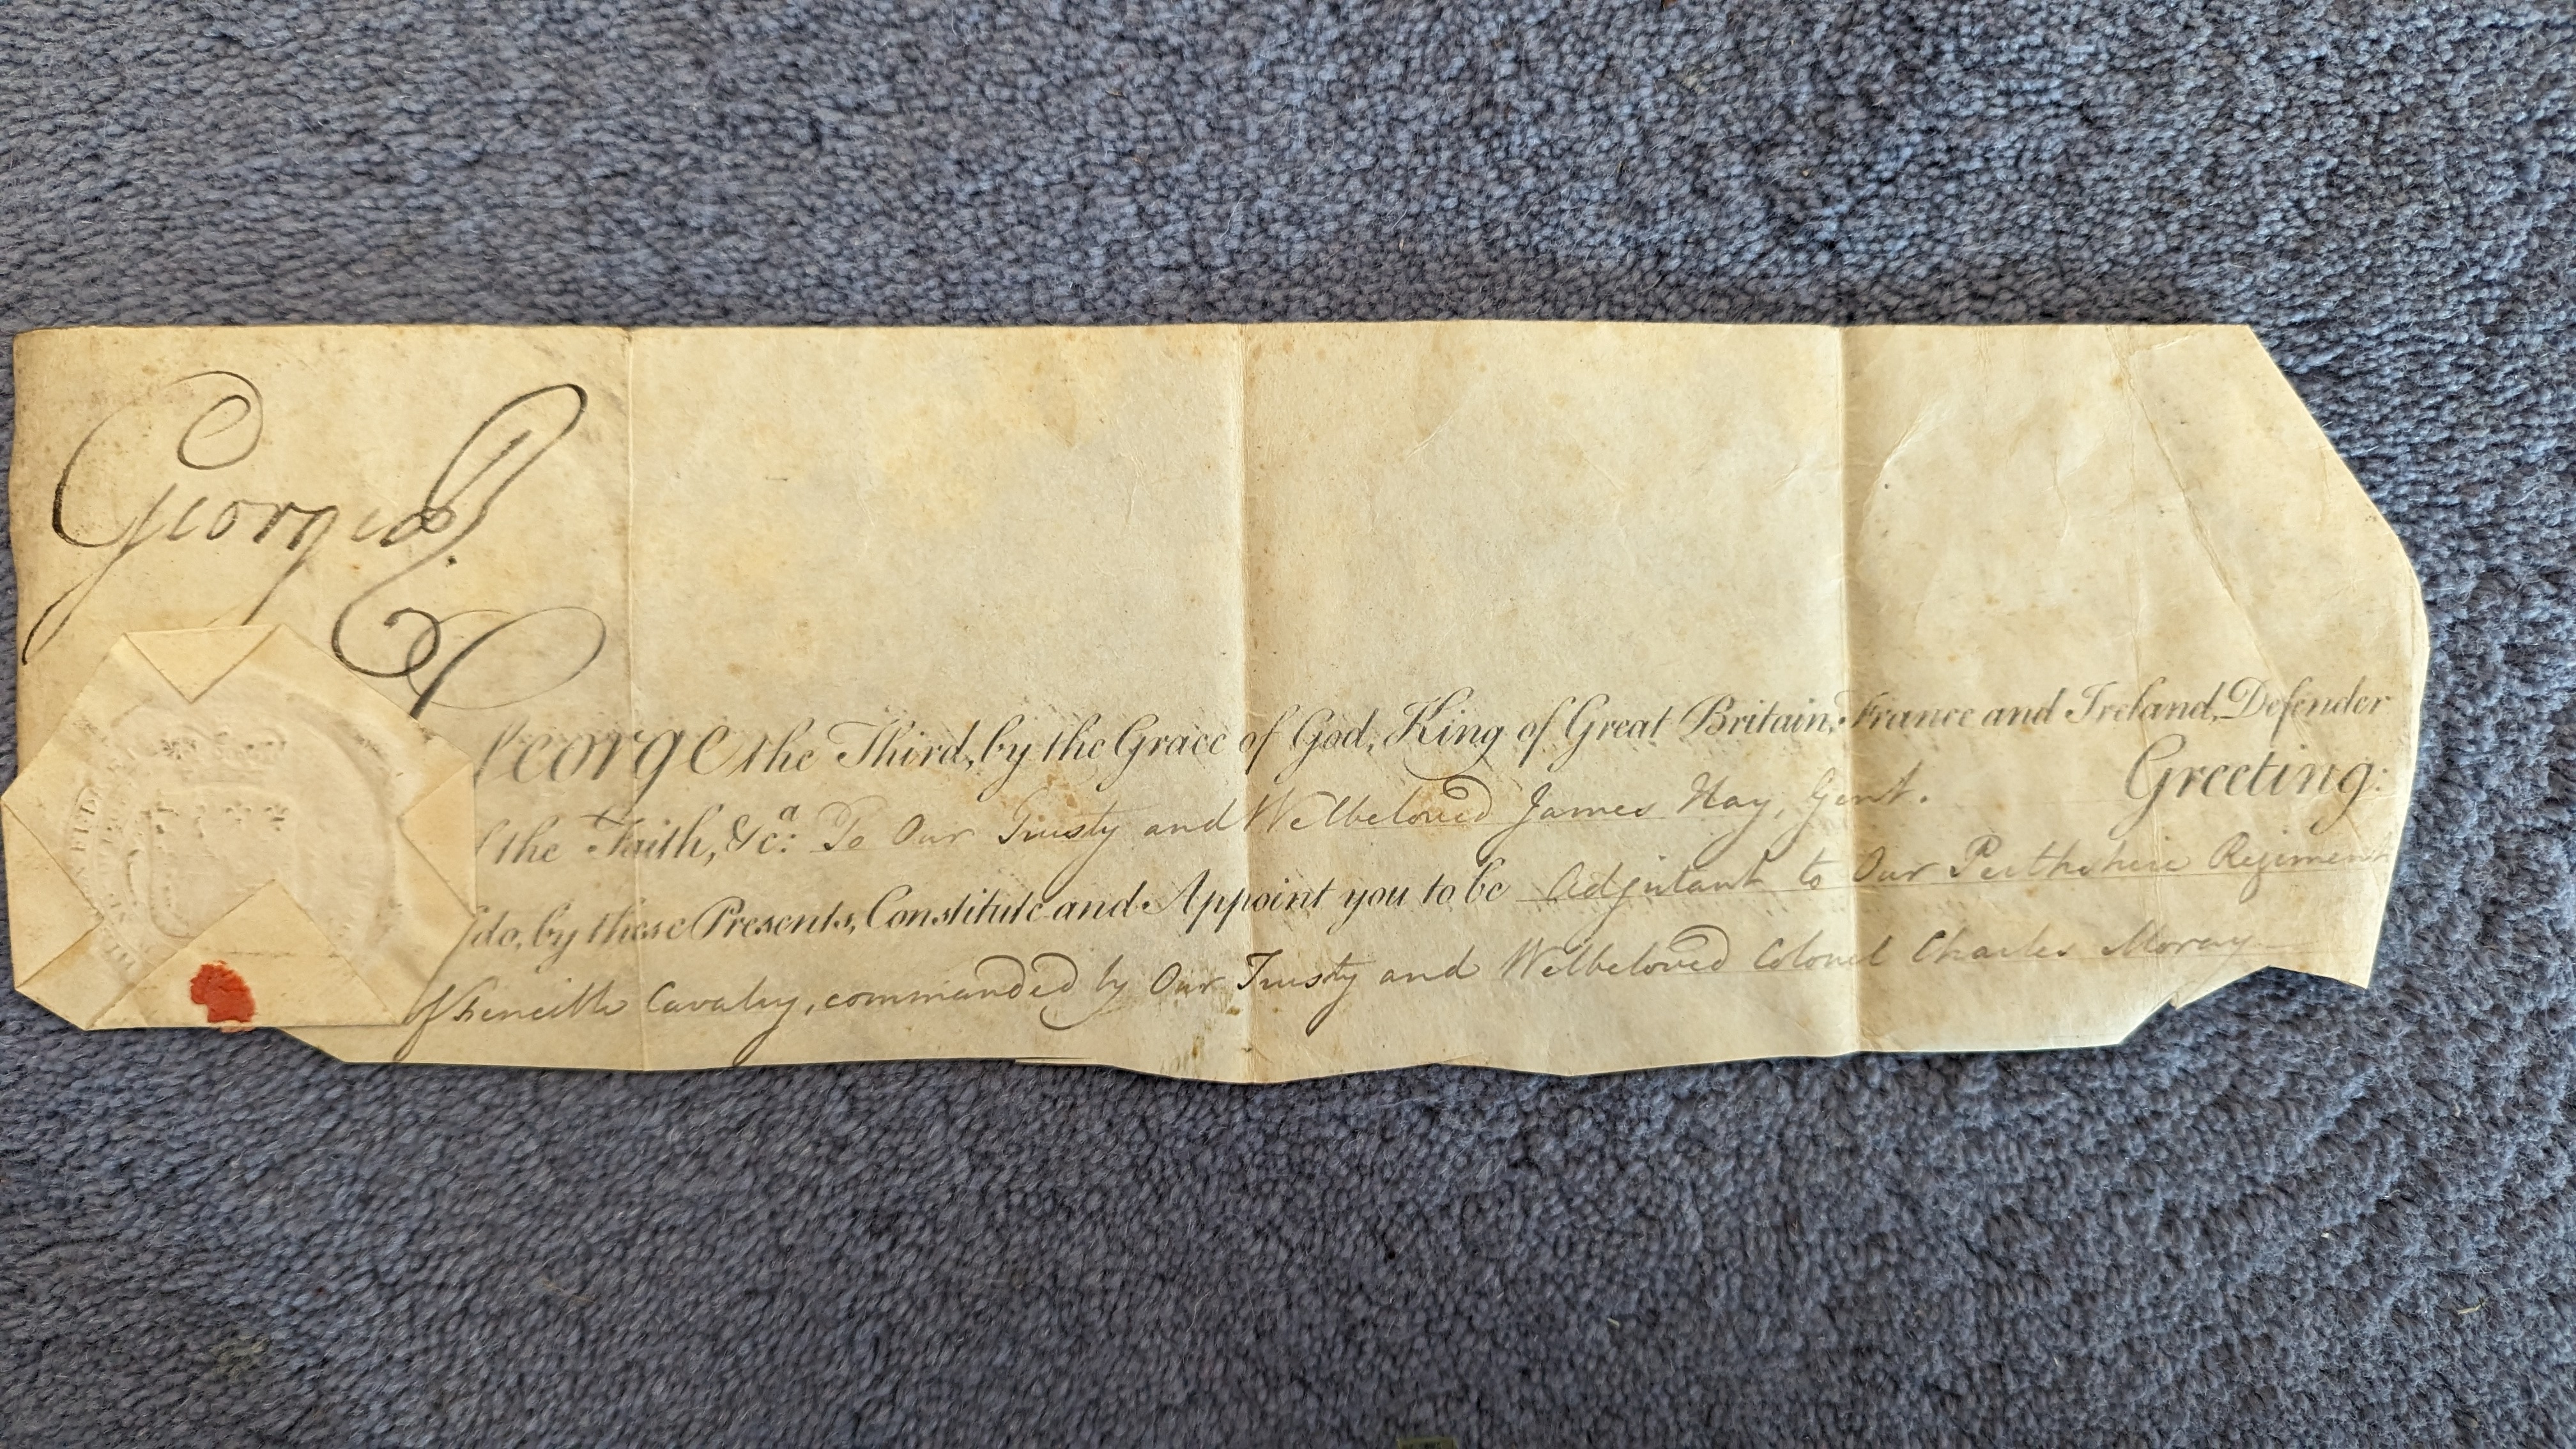 George R
George the Third, by the Grace of God, King of Great Britain, France and Ireland, Defender
of the Faith, &c.a: To Our Trusty and Welbeloved James Hay, Gent. Greeting:
do, by these Presents, Constitute and Appoint you to be Adjutant to Our Perthshire Regiment
of Fencible Cavalry, commanded by Our Trusty and Welbeloved Colonel Charles Moray